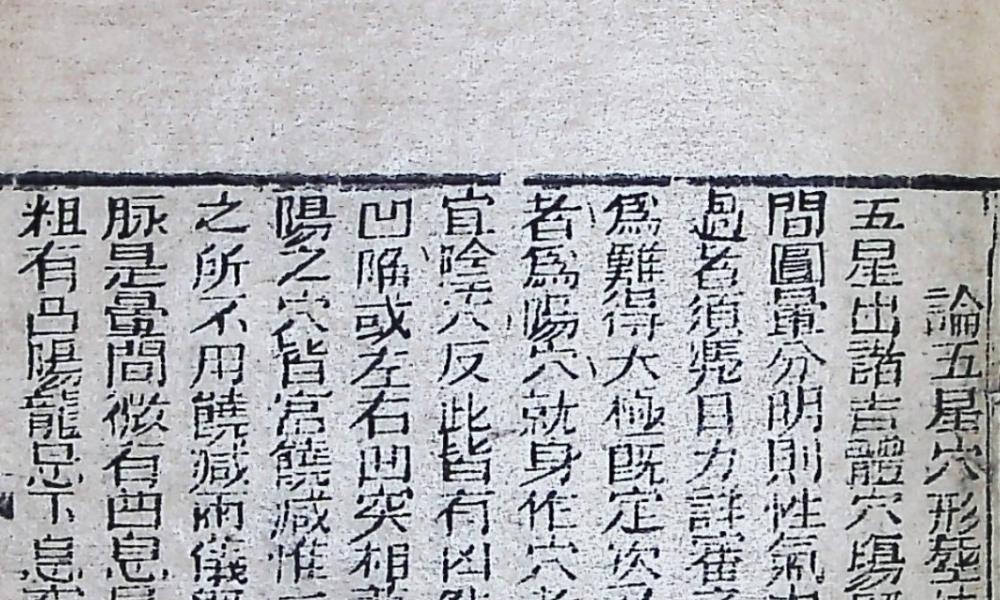 論五星穴形
五星出諸吉體穴場
間圓暈分明則性氣
過者須凴目力詳審
爲難得太極既定次
者爲陽穴就身作穴
宜陰穴反此皆有凶
凹陷或左右凹突相
陽之穴皆當饒减惟
之所不用饒减兩儀
脉是暈間微有凹息
粗有凸陽龍忌下息